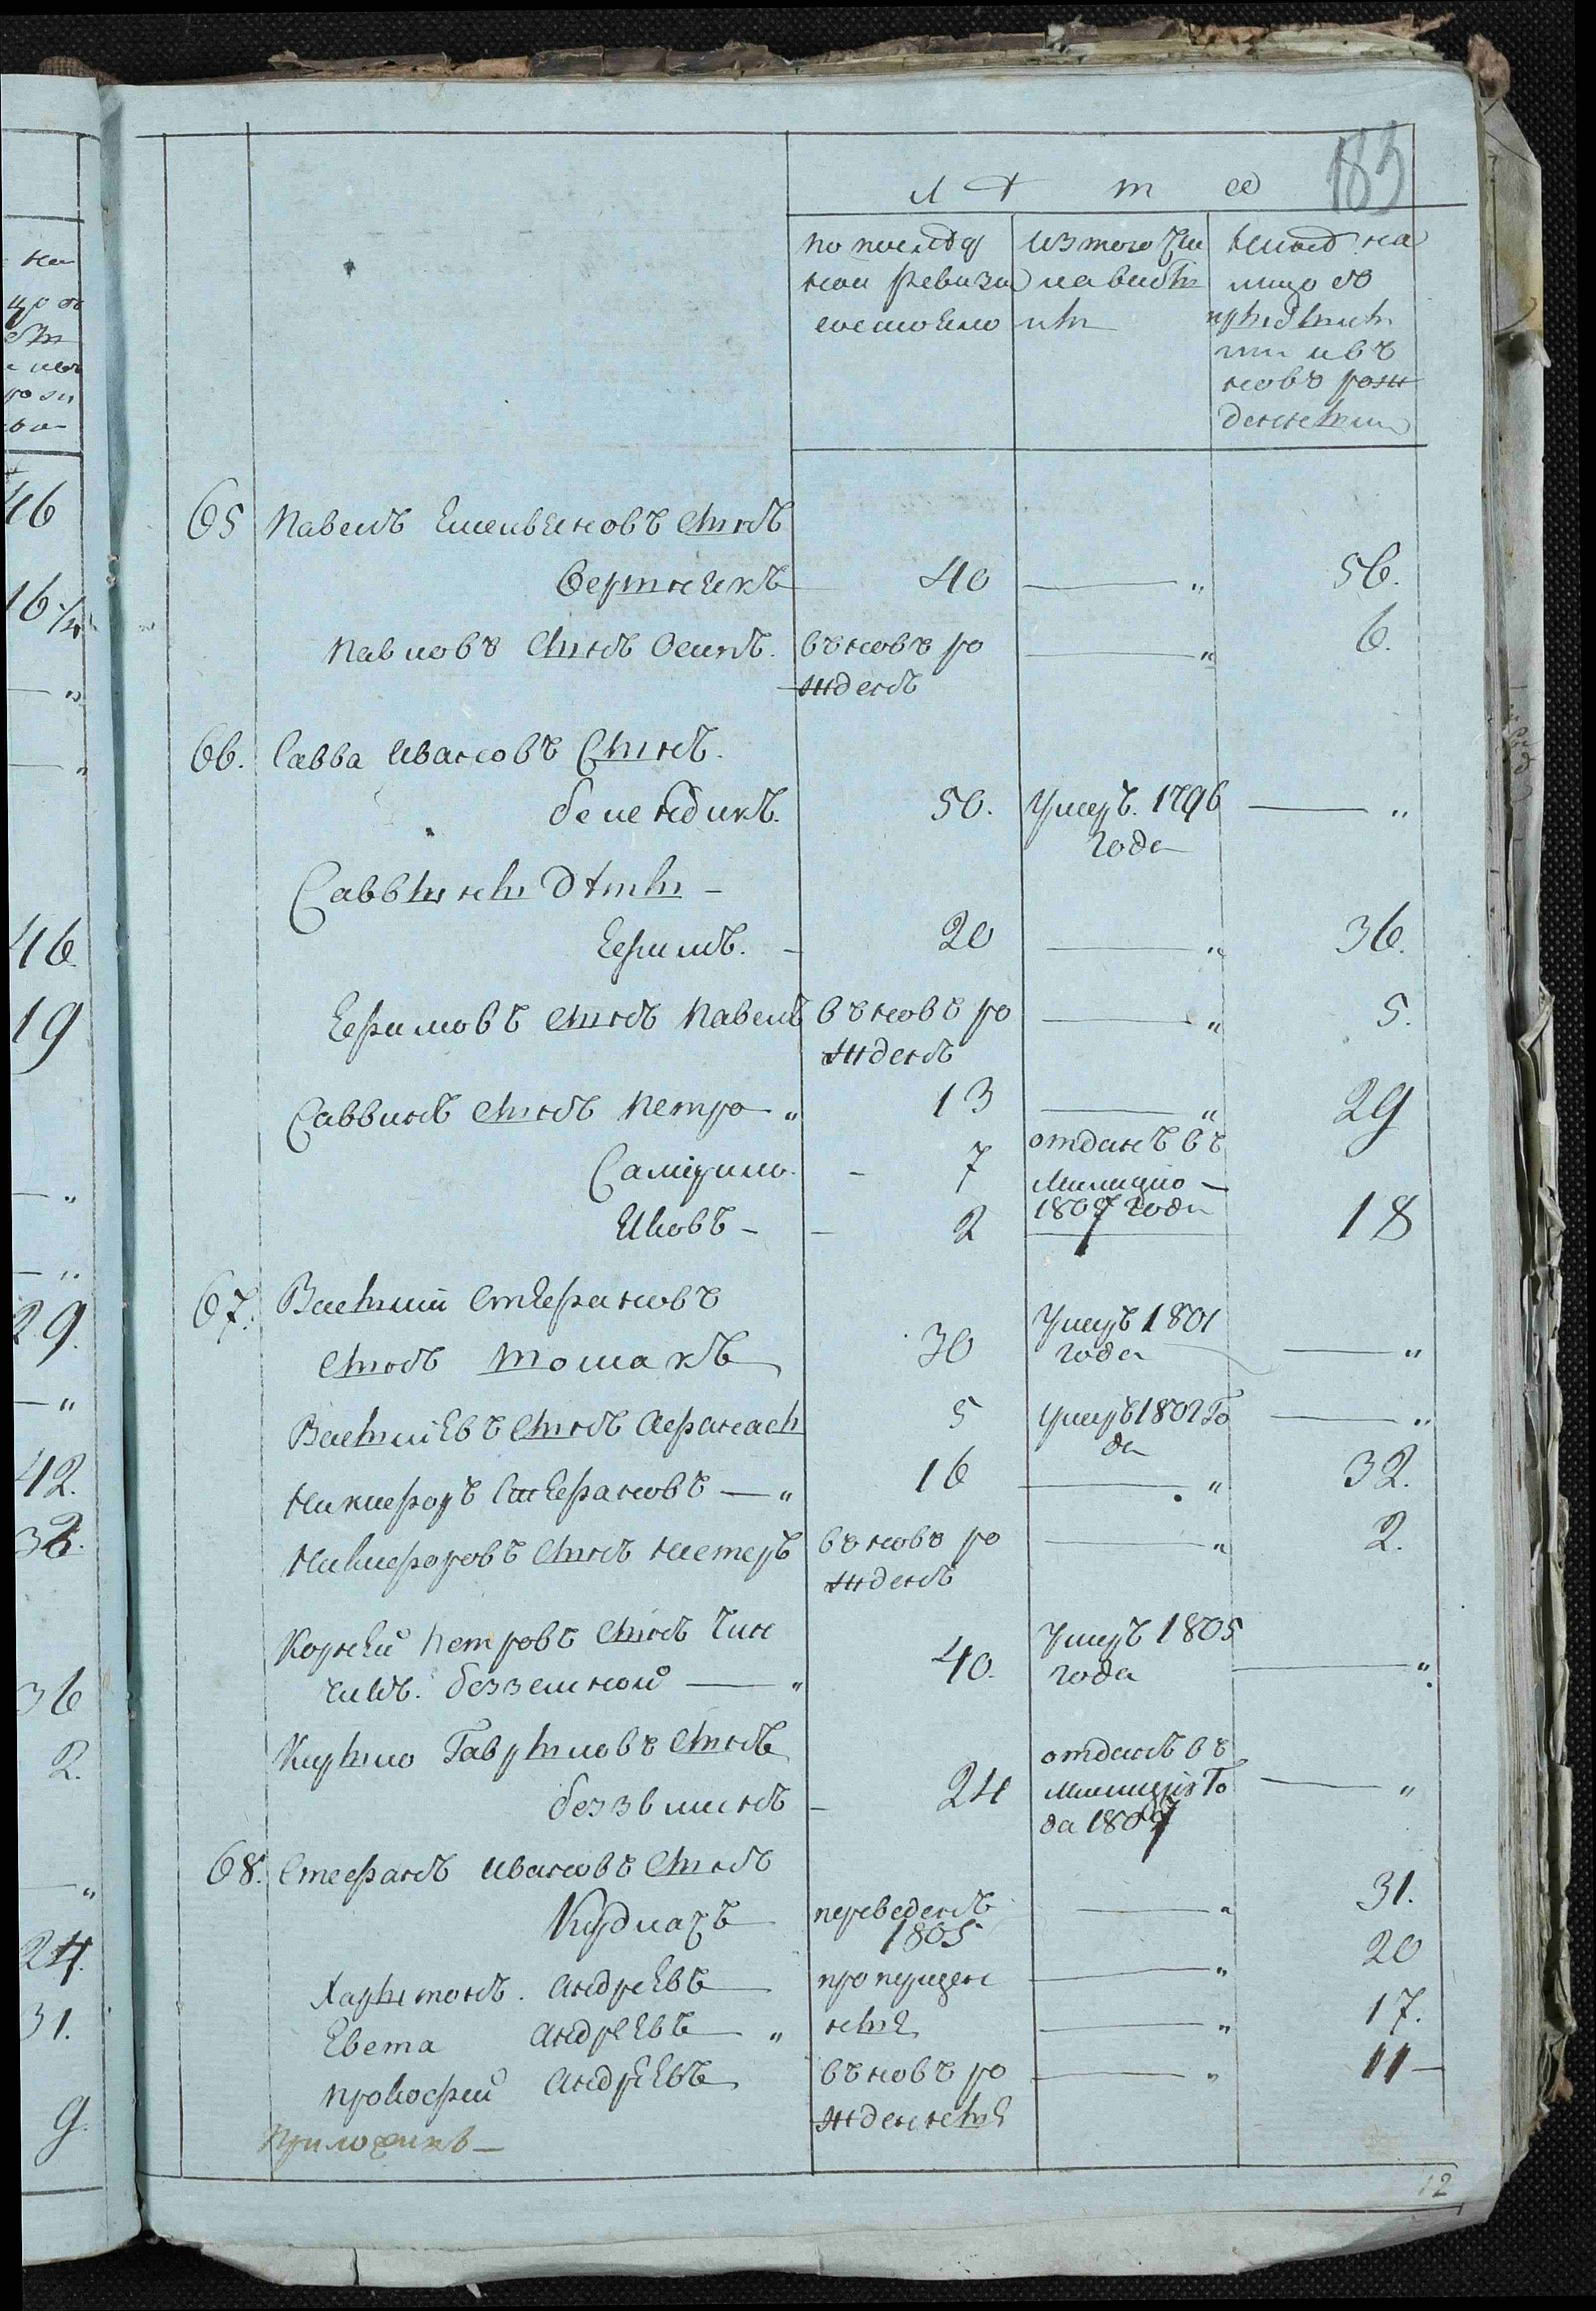 183
лѣта
по послѣд
ней ревизи
состояло
изтого чи
ла выбы
ло
ныне на
лицо со
ми и въ
новъ рож
денными
65 Павелъ Емельяновъ сынъ
Вертнекъ 40 — „ 56.
Павловъ сынъ Осипъ. въновъ ро — „ 6.
жденъ
66. Савва Ивановъ Сынъ.
бенендикъ. 50. Умеръ. 1796 — „
года
Саввыны дѣты —
Ефимъ. — 20 — „ 36.
Ефимовъ сынъ Павелъ въновъ ро — „ 5.
жденъ
Саввинъ сынъ Петро „ 13 — „ 29
отданъ въ
— 7 милицию —
1807 года
Яковъ — — 2 — 18
67. Васылий Стефановъ
сынъ Томакъ 30 Умеръ 1801 — „
года
Васылиевъ сынъ Афанасы 5 умеръ 1802 го — „
да
Никифоръ Стефановъ — „ 16 — „ 32.
Никифоровъ сынъ Нестеръ въновъ ро — „ 2.
жденъ
Корней Петровъ сынъ Чин
чикъ. безземной — „ 40. Умеръ 1805 — „
года
Кирыло Гаврыловъ сынъ
24 отданъ въ — „
милицию го
да 1807
68. Стефанъ Ивановъ сынъ
Кудлачъ переведенъ — „ 31.
1805
Харытонъ. Андреевъ пропущен — „ 20
Евста Андреевъ „ ные — „ 17.
Прокофий Андреевъ въновъ ро — „ 11 —
жденные
12
46
16
„
„
46
19
„
„
29.
„
42.
32.
36
2.
„
24.
31.
9.